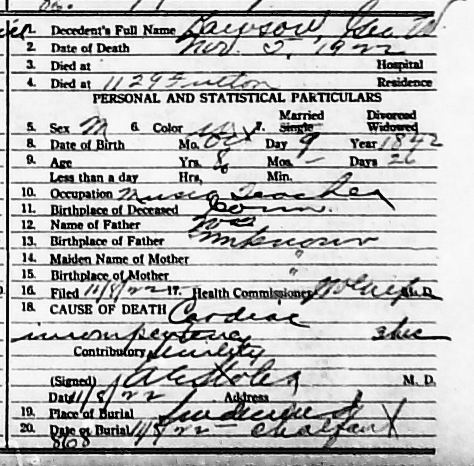 1. Decedent's Full Name Dawson, Geo W
2. Date of Death Nov. 5, 1922
3. Died at Hospital
4. Died at 1129 Fulton Residence
PERSONAL AND STATISTICAL PARTICULARS
5. Sex M 6. Color W 7. Married Single Divorced Widowed
8. Date of Birth Mo. Oct Day 9 Year 1842
9. Age Yrs. 80 Mos. – Days 26
Less than a day Hrs. Min.
10. Occupation Music Teacher
11. Birthplace of Deceased Conn.
12. Name of Father
13. Birthplace of Father Unknown
14. Maiden Name of Mother "
15. Birthplace of Mother "
16. Filed 11/8/22 17. Health Commissioner M.D.
18. CAUSE OF DEATH Cardiac
incompetency
Contributory Senility
(Signed) M. D.
Date 11/8/22 Address
19. Place of Burial
20. Date of Burial 11/8/22 Chalfant X
868